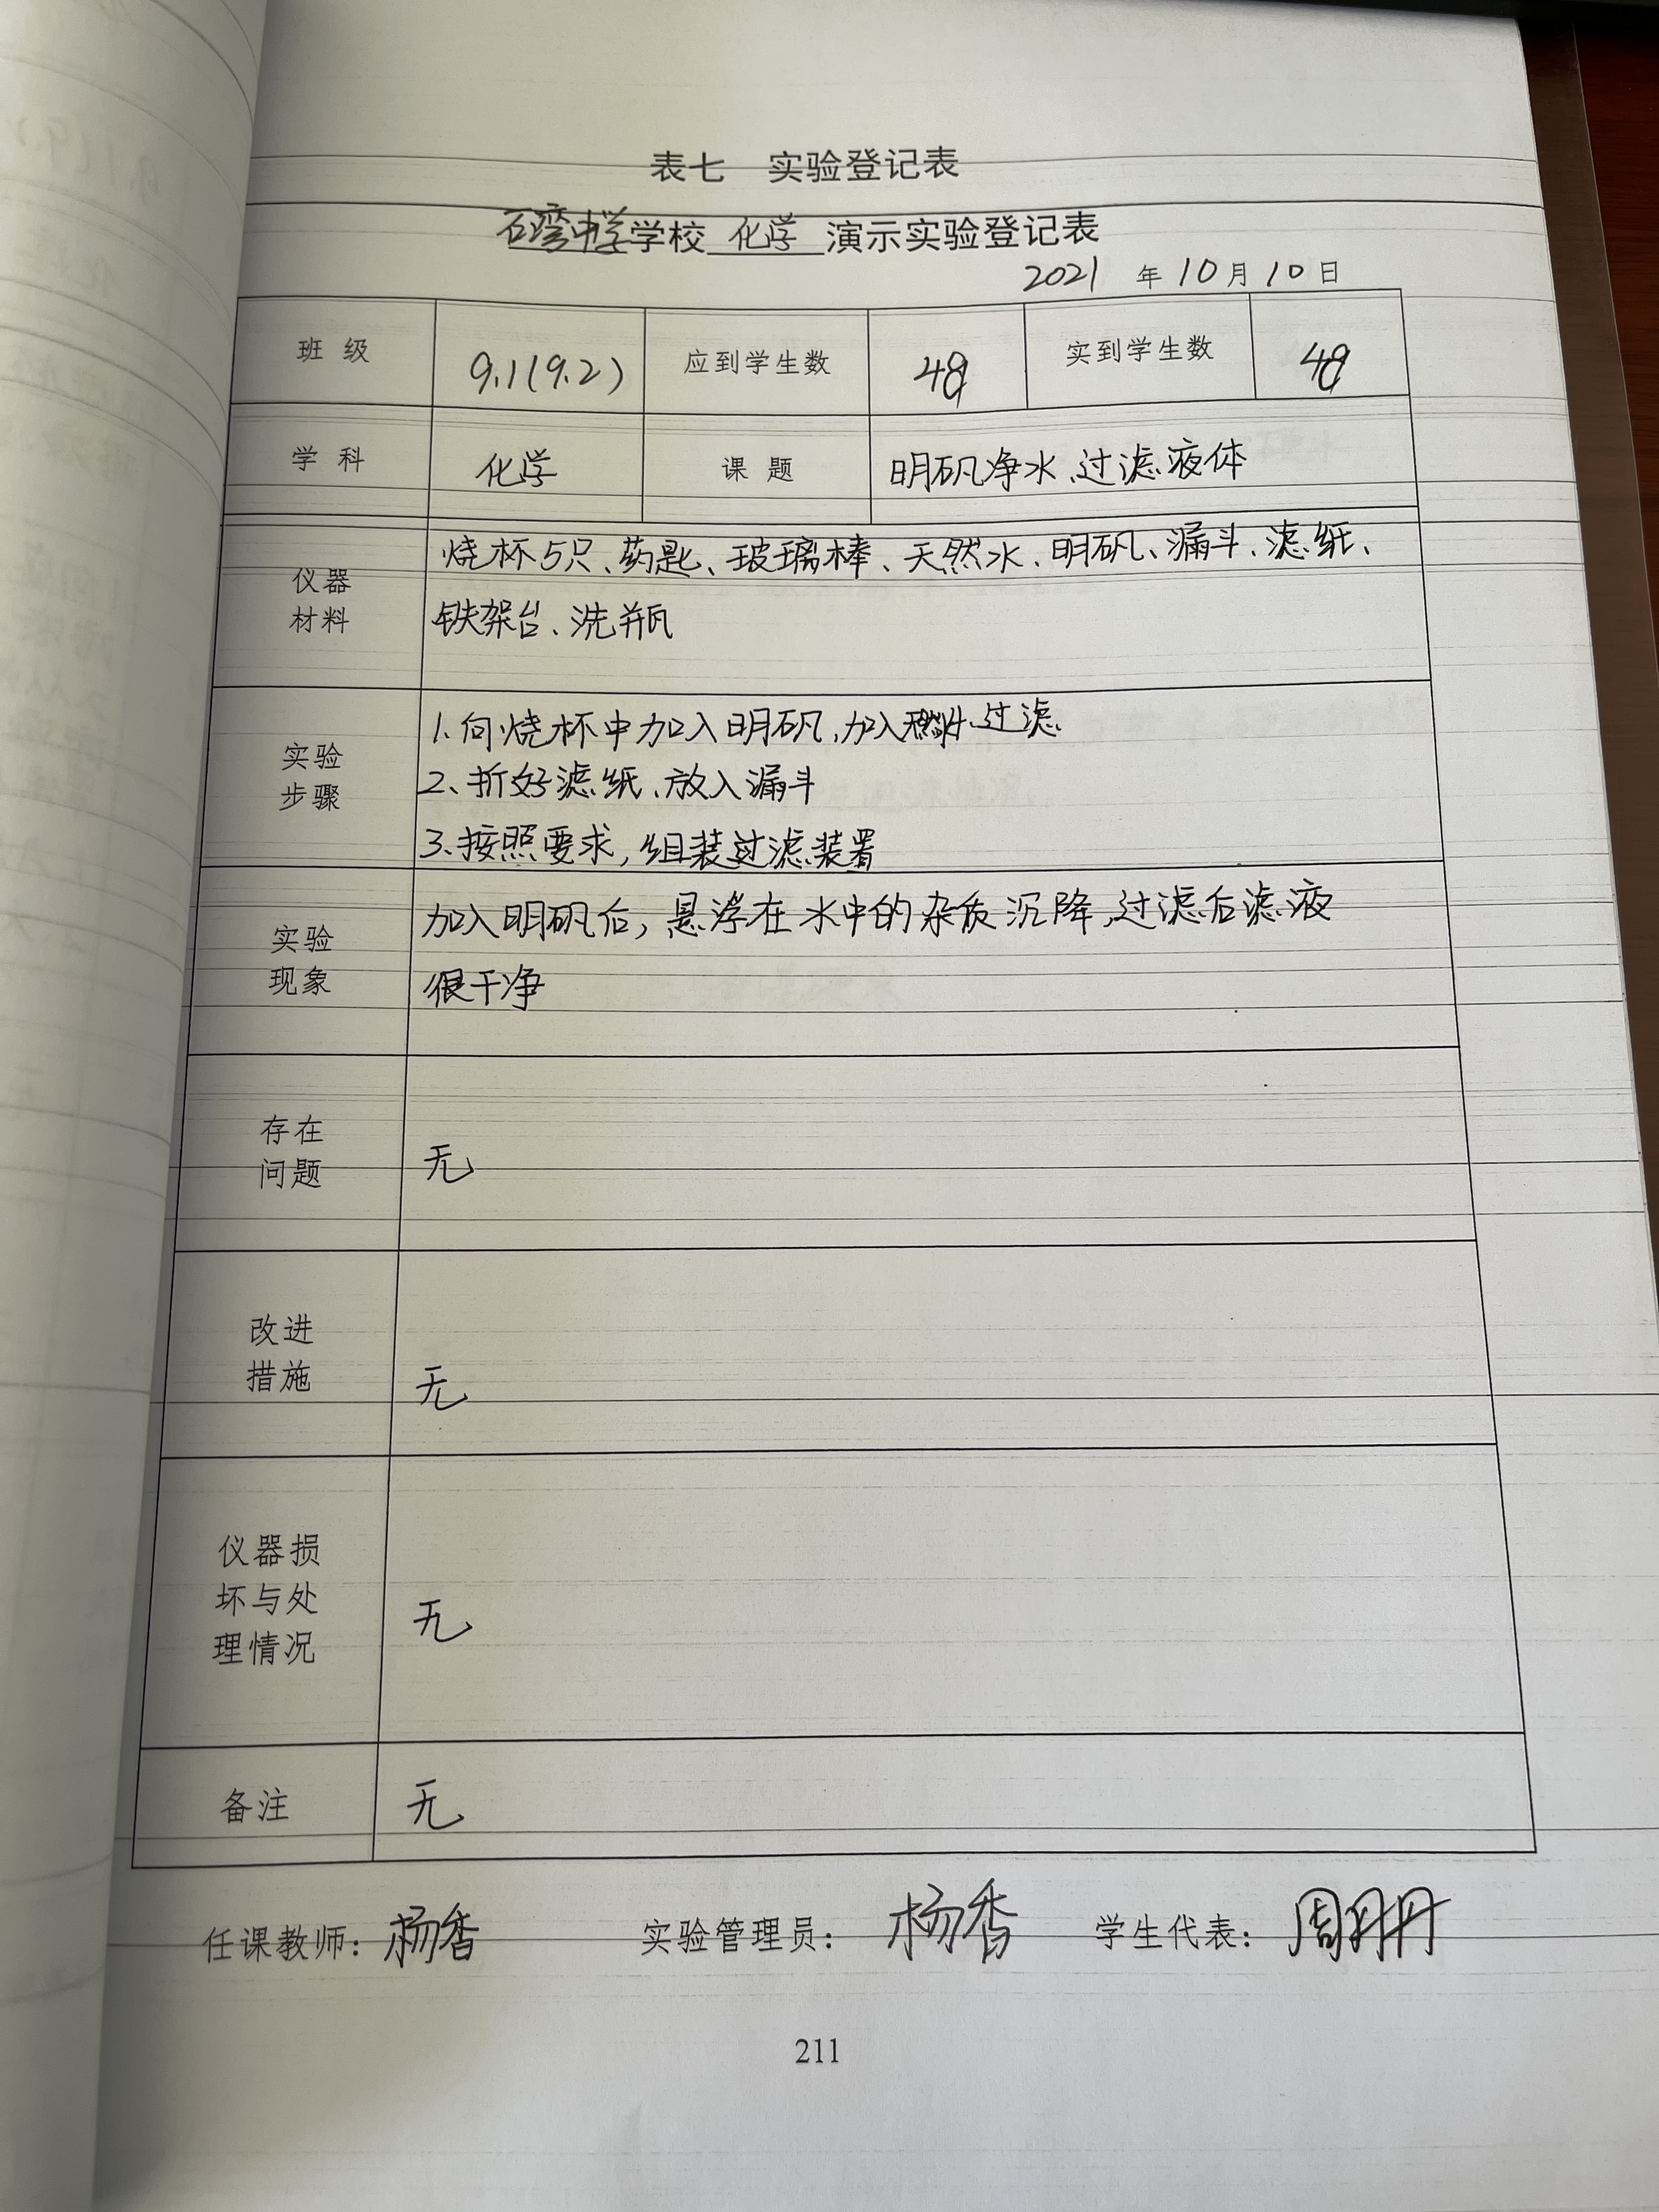 表七 实验登记表
石湾中学学校 化学 演示实验登记表
2021 年 10 月 10 日
班 级 9.1(9.2) 应到学生数 48 实到学生数 48
学 科 化学 课 题 明矾净水、过滤液体
仪器
材料
烧杯5只、药匙、玻璃棒、天然水、明矾、漏斗、滤纸、
铁架台、洗瓶
实验
步骤
1.向烧杯中加入明矾,加入 过滤
2、折好滤纸、放入漏斗
3、按照要求,组装过滤装置
实验
现象
加入明矾后,悬浮在水中的杂质沉降,过滤后滤液
很干净
存在
问题
无
改进
措施
无
仪器损
坏与处
理情况
无
备注 无
任课教师:杨香 实验管理员:杨香 学生代表:周
211